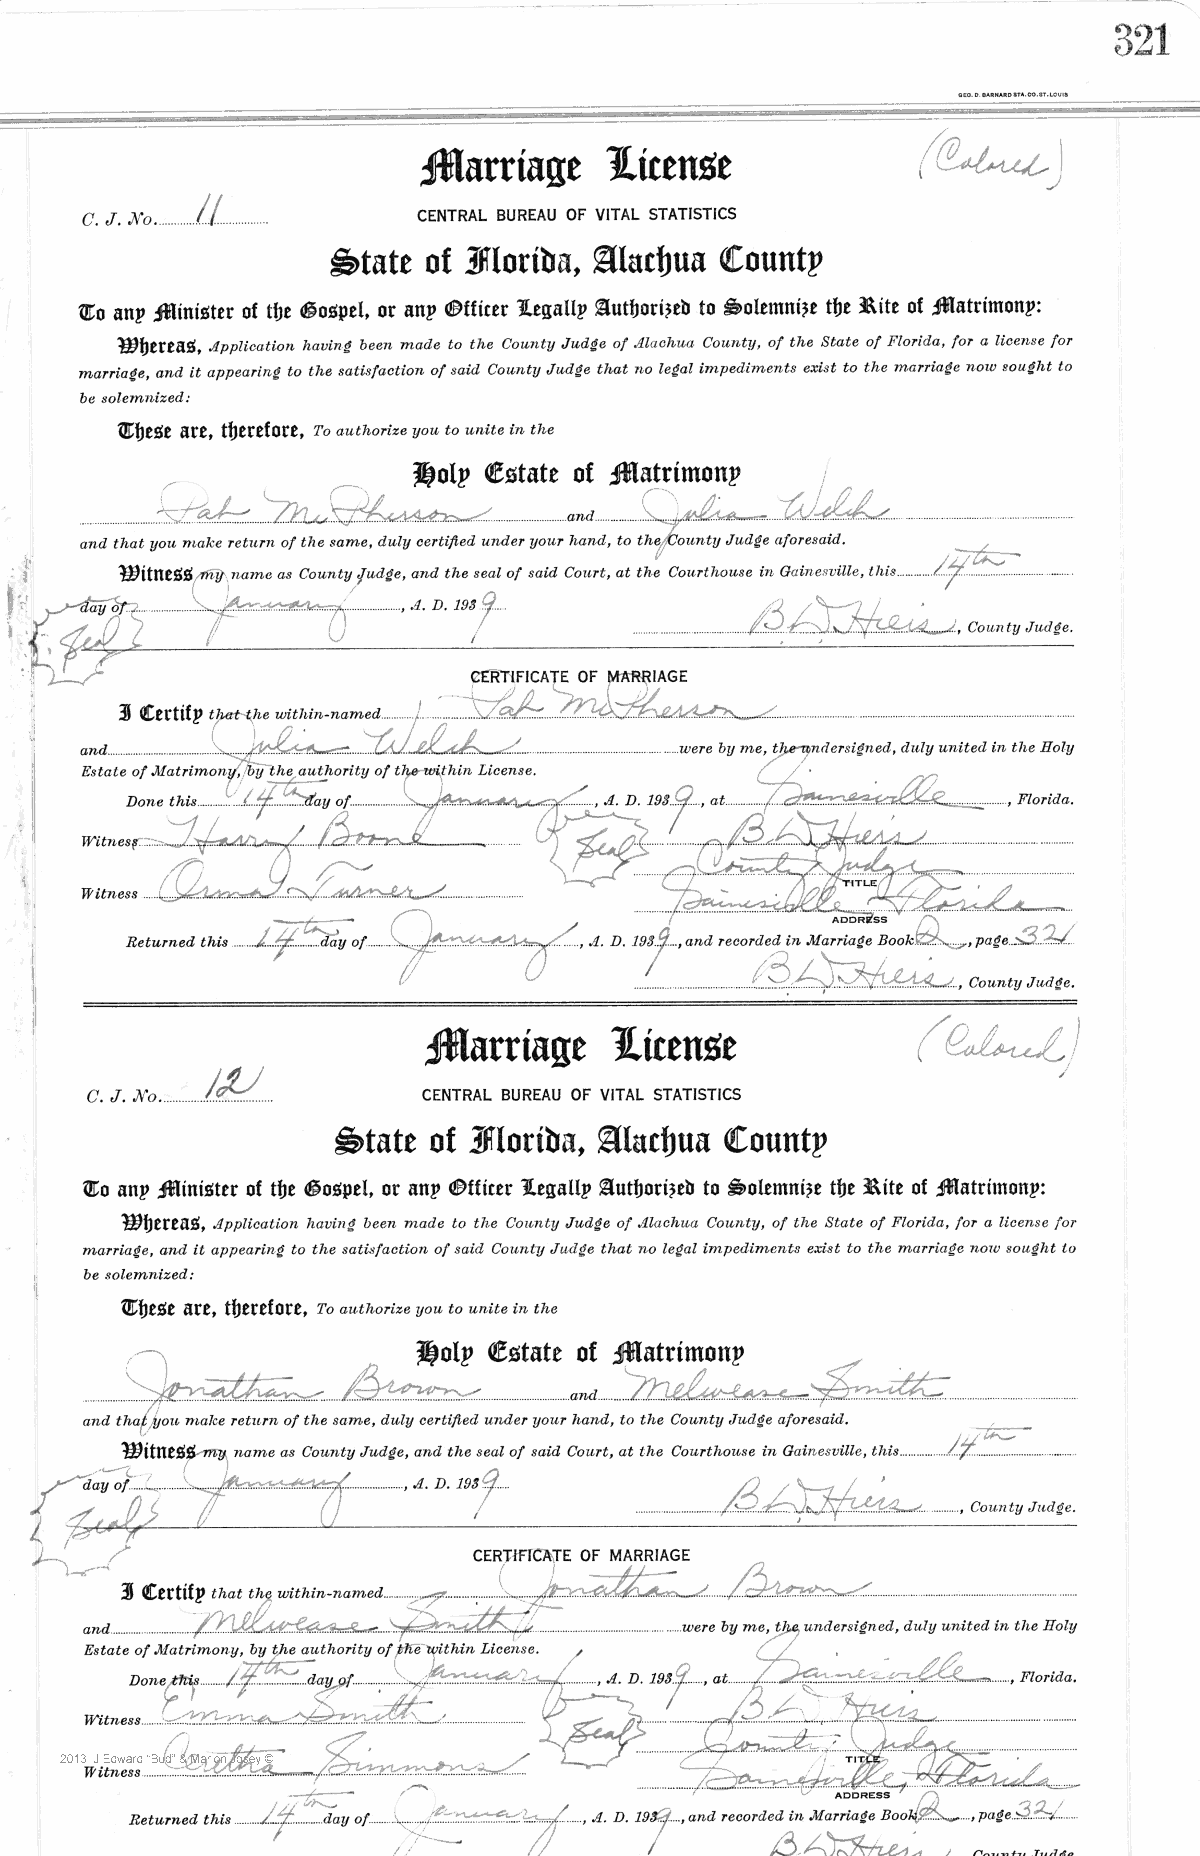 321
GEO. D. BARNARD STA. CO. ST. LOUIS
Marriage License (Colored)
C. J. No. 11 CENTRAL BUREAU OF VITAL STATISTICS
State of Florida, Alachua County
To any Minister of the Gospel, or any Officer Legally Authorized to Solemnize the Rite of Matrimony:
Whereas, Application having been made to the County Judge of Alachua County, of the State of Florida, for a license for
marriage, and it appearing to the satisfaction of said County Judge that no legal impediments exist to the marriage now sought to
be solemnized:
These are, therefore, To authorize you to unite in the
Holy Estate of Matrimony
Pat McPherson and Julia Welch
and that you make return of the same, duly certified under your hand, to the County Judge aforesaid.
Witness my name as County Judge, and the seal of said Court, at the Courthouse in Gainesville, this 14th
day of January, A. D. 1939
Seal B D Hiers, County Judge.
CERTIFICATE OF MARRIAGE
I Certify that the within-named Pat McPherson
and Julia Welch were by me, the undersigned, duly united in the Holy
Estate of Matrimony, by the authority of the within License.
Done this 14th day of January, A. D. 1939, at Gainesville, Florida.
Witness Harry Boone Seal B D Hiers
County Judge
TITLE
Witness Orma Turner Gainesville Florida
ADDRESS
Returned this 14th day of January, A. D. 1939, and recorded in Marriage Book 2, page 321
B D Hiers, County Judge.
Marriage License (Colored)
C. J. No. 12 CENTRAL BUREAU OF VITAL STATISTICS
State of Florida, Alachua County
To any Minister of the Gospel, or any Officer Legally Authorized to Solemnize the Rite of Matrimony:
Whereas, Application having been made to the County Judge of Alachua County, of the State of Florida, for a license for
marriage, and it appearing to the satisfaction of said County Judge that no legal impediments exist to the marriage now sought to
be solemnized:
These are, therefore, To authorize you to unite in the
Holy Estate of Matrimony
Jonathan Brown and Melwease Smith
and that you make return of the same, duly certified under your hand, to the County Judge aforesaid.
Witness my name as County Judge, and the seal of said Court, at the Courthouse in Gainesville, this 14th
day of January, A. D. 1939
Seal B D Hiers, County Judge.
CERTIFICATE OF MARRIAGE
I Certify that the within-named Jonathan Brown
and Melwease Smith were by me, the undersigned, duly united in the Holy
Estate of Matrimony, by the authority of the within License.
Done this 14th day of January, A. D. 1939, at Gainesville, Florida.
Witness Emma Smith Seal B D Hiers
County Judge
2013 J Edward "Bud" & Marion Josey © TITLE
Witness Aretha Simmons Gainesville, Florida
ADDRESS
Returned this 14th day of January, A. D. 1939, and recorded in Marriage Book 2, page 321
B D Hiers, County Judge.